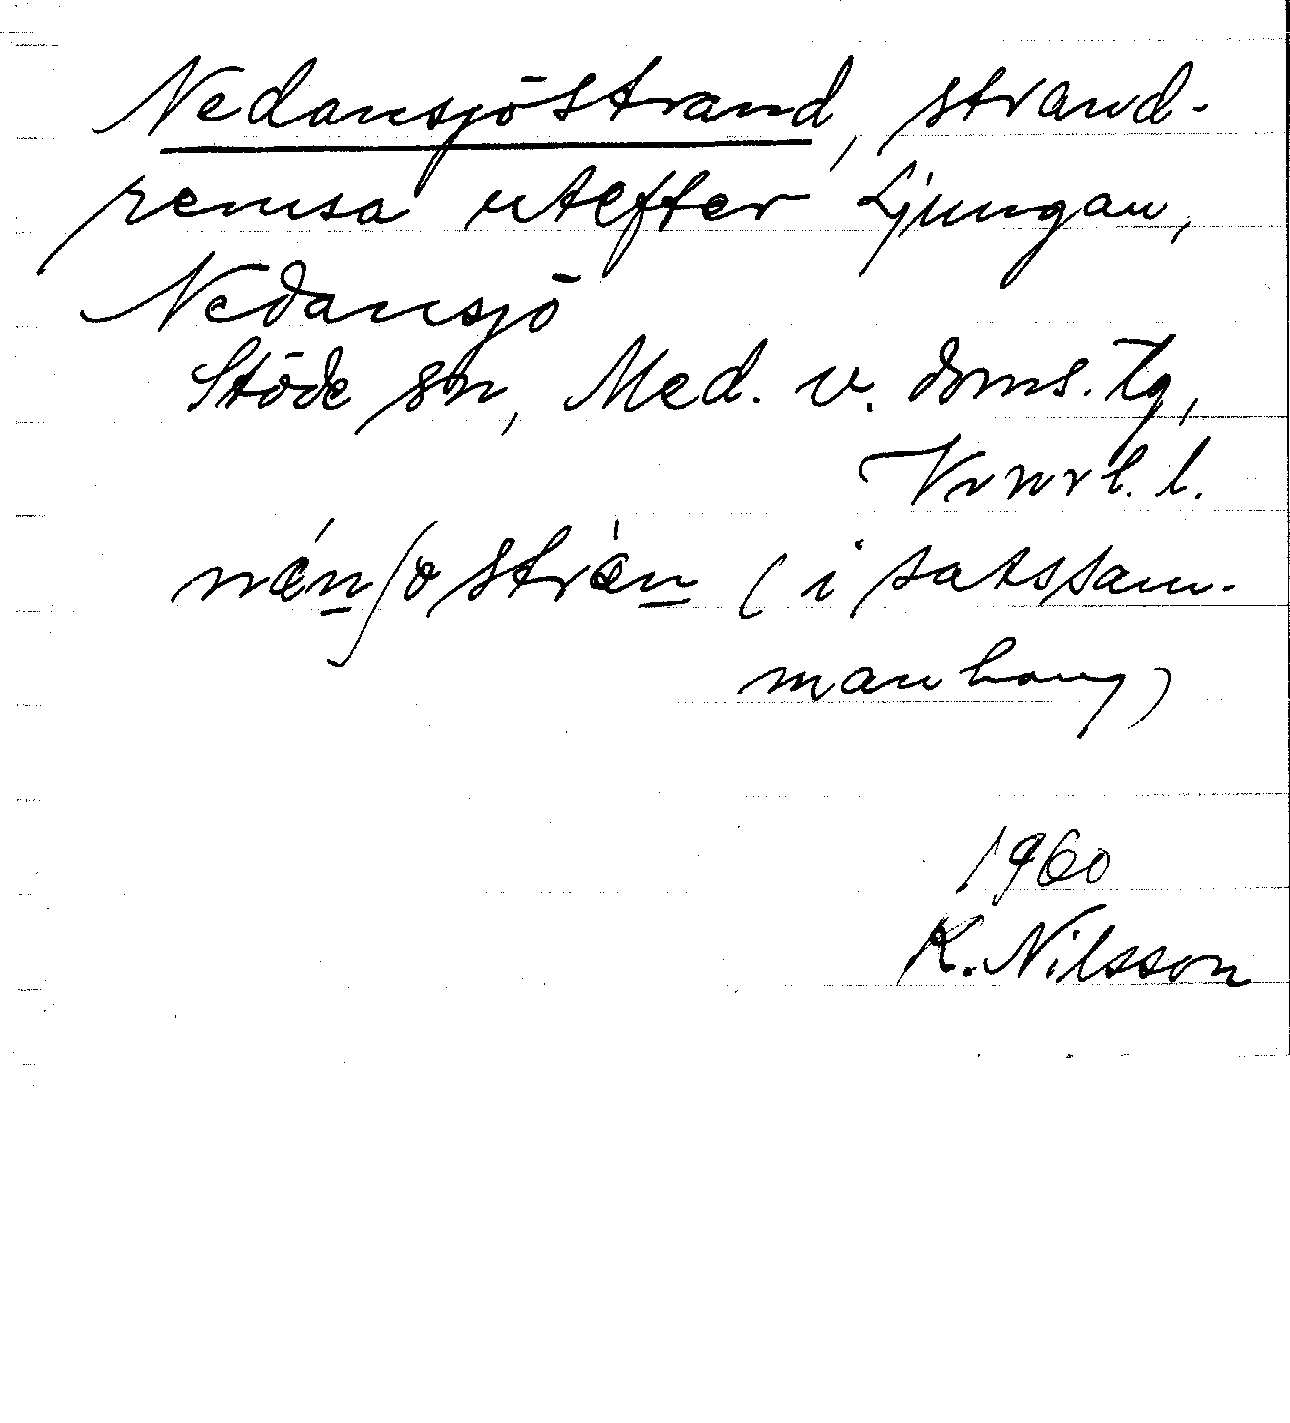 Nedansjöstrand, strand-
remsa utefter Ljungan,
Nedansjö
Stöde sn, Med. v. doms. tg,
Vnorl. l.
(i satssam-
manhang)
1960
K. Nilsson